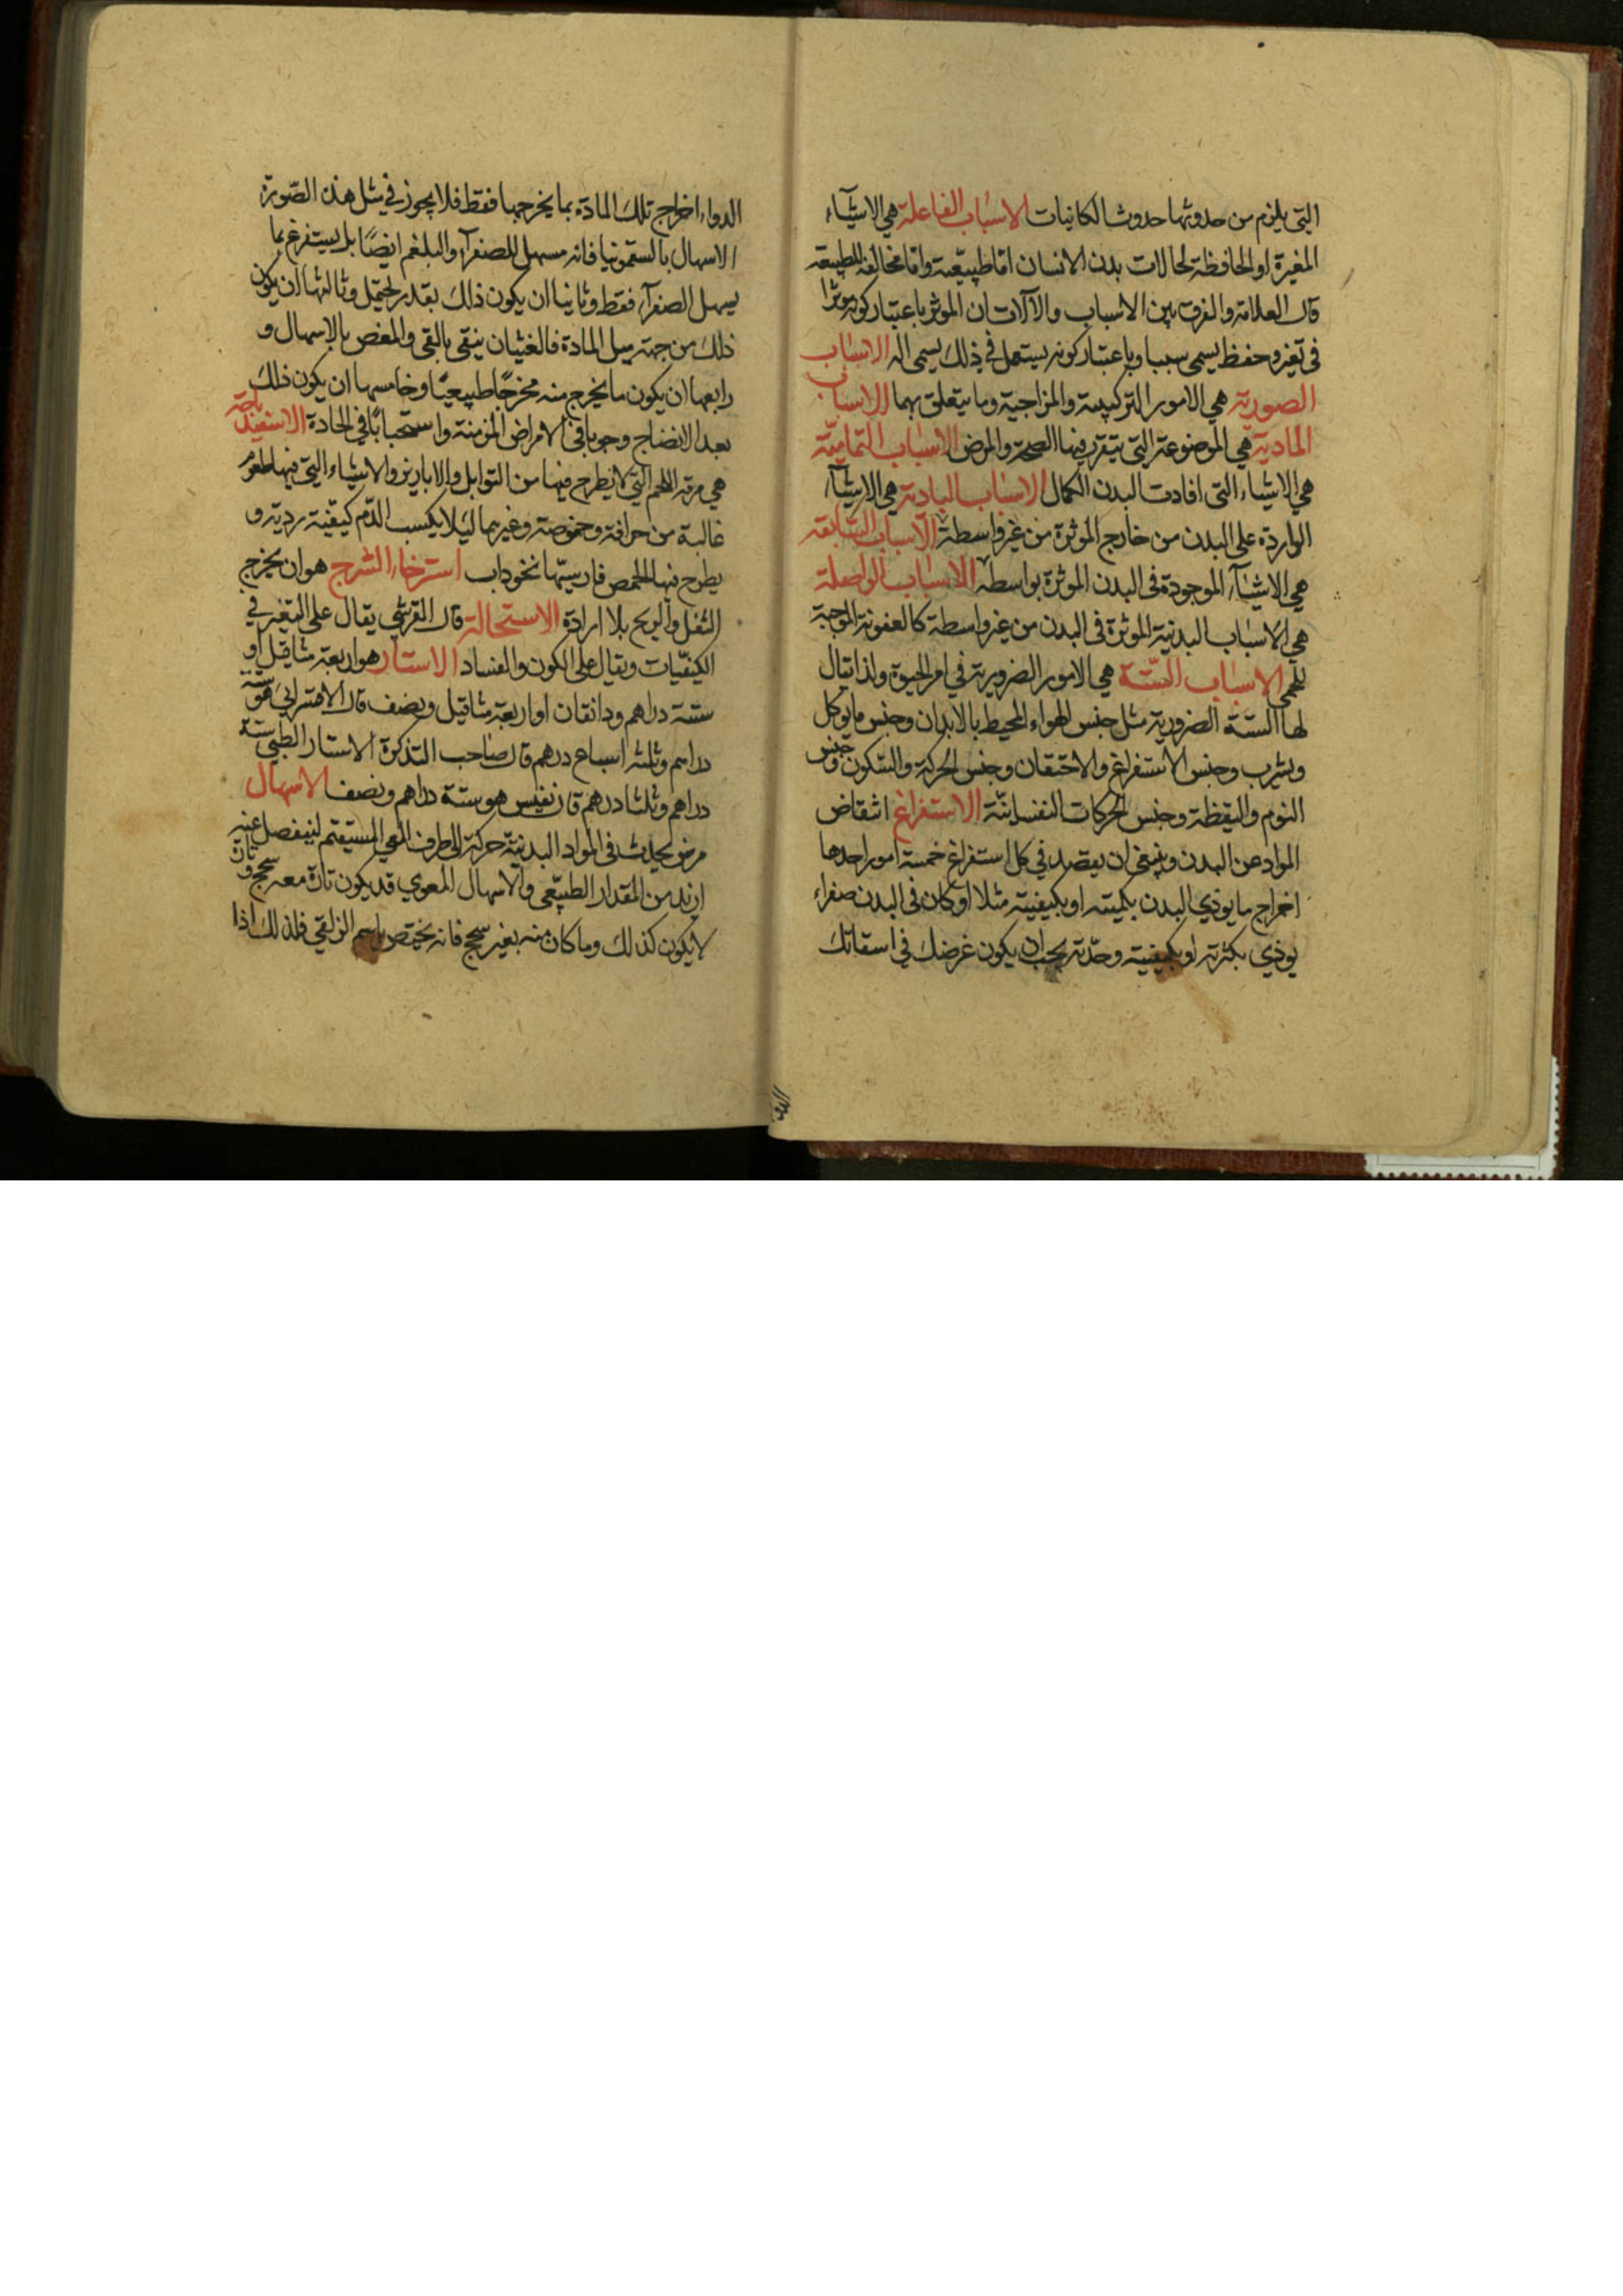 التى يلزم من حدوثها حدوث الكائنات الاسباب الفاعلة هي الاشياء
المغيرة او الحافظة لحالات بدن الانسان اما طبيعية واما مخالفة للطبيعة
قال العلامة والفرق بين الاسباب والآلات ان الموثر باعتبار كونه موثرا
فى تغير وحفظ يسمى سببا وباعتبار كونه يستعمل في ذلك يسمى اله الاسباب
الصورية هي الامور التركيبية والمزاجية وما يتعلق بهما الاسباب
المادية هي الموضوعة التى يتقرر فيها الصحة والمرض الاسباب التمامية
هي الاشياء التى افادت البدن الكمال الاسباب البادية هي الاشيآء
الواردة على البدن من خارج الموثرة من غير واسطة الاسباب السابقة
هي الاشيآء الموجودة فى البدن الموثرة بواسطة الاسباب الواصلة
هي الاسباب البدنية الموثرة فى البدن من غير واسطة كالعفونة الموجبة
للحمى الاسباب الستة هي الامور الضرورية في امر الحيوة ولذا يقال
لها الستة الضرورية مثل جنس الهواء المحيط بالابدان وجنس ما يوكل
ويشرب وجنس الاستفراغ والاحتقان وجنس الحركة والسكون وجنس
النوم واليقظة وجنس الحركات النفسانية الاستفراغ انتقاض
المواد عن البدن وينبغي ان يقصد في كل استفراغ خمسة امور احدها
اخراج ما يوذي البدن بكميته او بكيفيته مثلا لو كان فى البدن صفراء
يوذي بكثرته او بكيفيته وحدته يجب ان يكون غرضك في اسقائك
الدواء اخراج تلك المادة بما يخرجها فقط فلا يجوز في مثل هذه الصورة
الاسهال بالسقمونيا فانه مسهل للصفرآء والبلغم ايضًا بل يستفرغ بما
يسهل الصفرآء فقط وثانيا ان يكون ذلك بقدر يحتمل وثالثها ان يكون
ذلك من جهة ميل المادة فالغثيان ينقى بالقى والمغص بالاسهال و
رابعها ان يكون ما يخرج منه مخرجًا طبيعيًا وخامسها ان يكون ذلك
بعد الانضاج وجوبا فى الامراض المزمنة واستحبابًا في الحادة الاسفيدباجة
هي مرقة اللحم التي لا يطرح فيها من التوابل والابازير والاشياء التي فيها طعوم
غالبة من حرافة وحموضة وغيرهما ليلا يكسب الدم كيفية ردية و
يطرح فيها الحمص فارسيتها نخوداب استرخاء الشرج هو ان يخرج
الثفل والريح بلا ارادة الاستحالة قال القرشي يقال على التغير في
الكيفيات ويقال على الكون والفساد الاستار هو اربعة مثاقيل او
ستة دراهم ودانقان او اربعة مثاقيل ونصف قال الاقسرائى هو ستة
دراهم وثلثة اسباع درهم قال صاحب التذكرة الاستار الطبي ستة
دراهم وثلثا درهم قال نفيس هو ستة دراهم ونصف الاسهال
مرض يحدث فى المواد البدنية حركة الى طرف المعي المستقيم لينفصل عنه
ازيد من المقدار الطبيعى والاسهال المعوي قد يكون تارة معه سحج وتارة
لا يكون كذلك وما كان منه بغير سحج فانه يختص باسم الزلقي فلذلك اذا